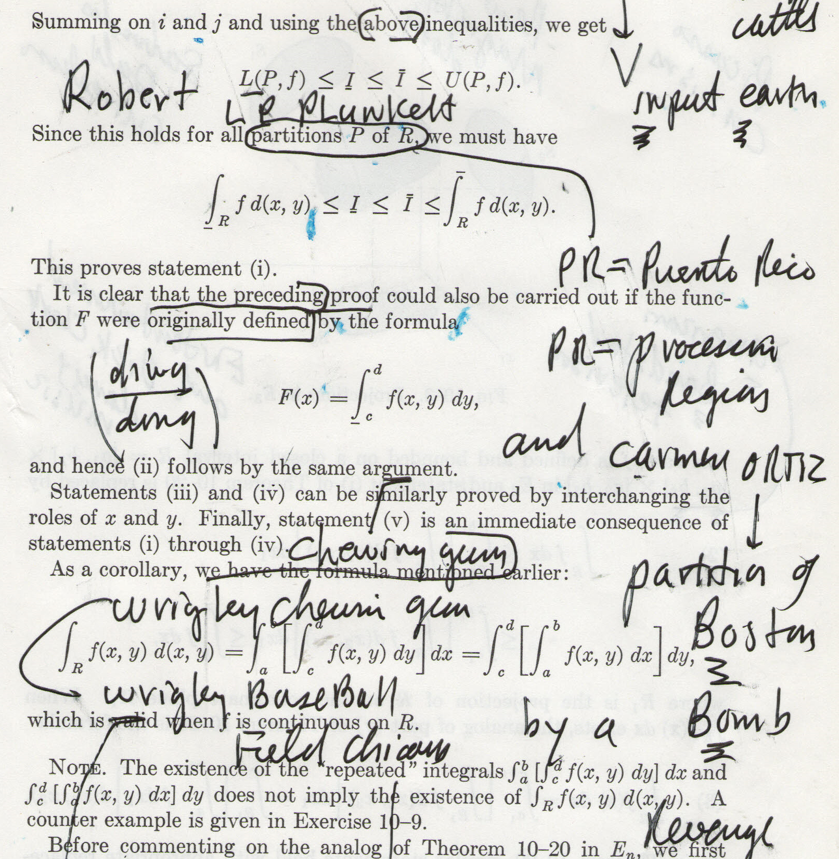 Summing on i and j and using the above inequalities, we get
cattls
L(P, f) ≤ I̲ ≤ Ī ≤ U(P, f).
Robert
L B PLunkett
input earth
Since this holds for all partitions P of R, we must have
∫̲_R f d(x, y) ≤ I̲ ≤ Ī ≤ ∫̄_R f d(x, y).
PR = Puento Rico
This proves statement (i).
It is clear that the preceding proof could also be carried out if the func-
tion F were originally defined by the formula
PR = processin
Region
ding
dong
F(x) = ∫̲_c^d f(x, y) dy,
and carmen ORTIZ
and hence (ii) follows by the same argument.
Statements (iii) and (iv) can be similarly proved by interchanging the
roles of x and y. Finally, statement (v) is an immediate consequence of
statements (i) through (iv).
Chewing gum
As a corollary, we have the formula mentioned earlier:
partition of
Boston
wrigley chewin gum
∫_R f(x, y) d(x, y) = ∫_a^b [∫_c^d f(x, y) dy] dx = ∫_c^d [∫_a^b f(x, y) dx] dy,
wrigley BaseBall
by a Bomb
which is valid when f is continuous on R.
Field Chicago
NOTE. The existence of the "repeated" integrals ∫_a^b [∫_c^d f(x, y) dy] dx and
∫_c^d [∫_a^b f(x, y) dx] dy does not imply the existence of ∫_R f(x, y) d(x, y). A
counter example is given in Exercise 10–9.
Revenge
Before commenting on the analog of Theorem 10–20 in E_n, we first